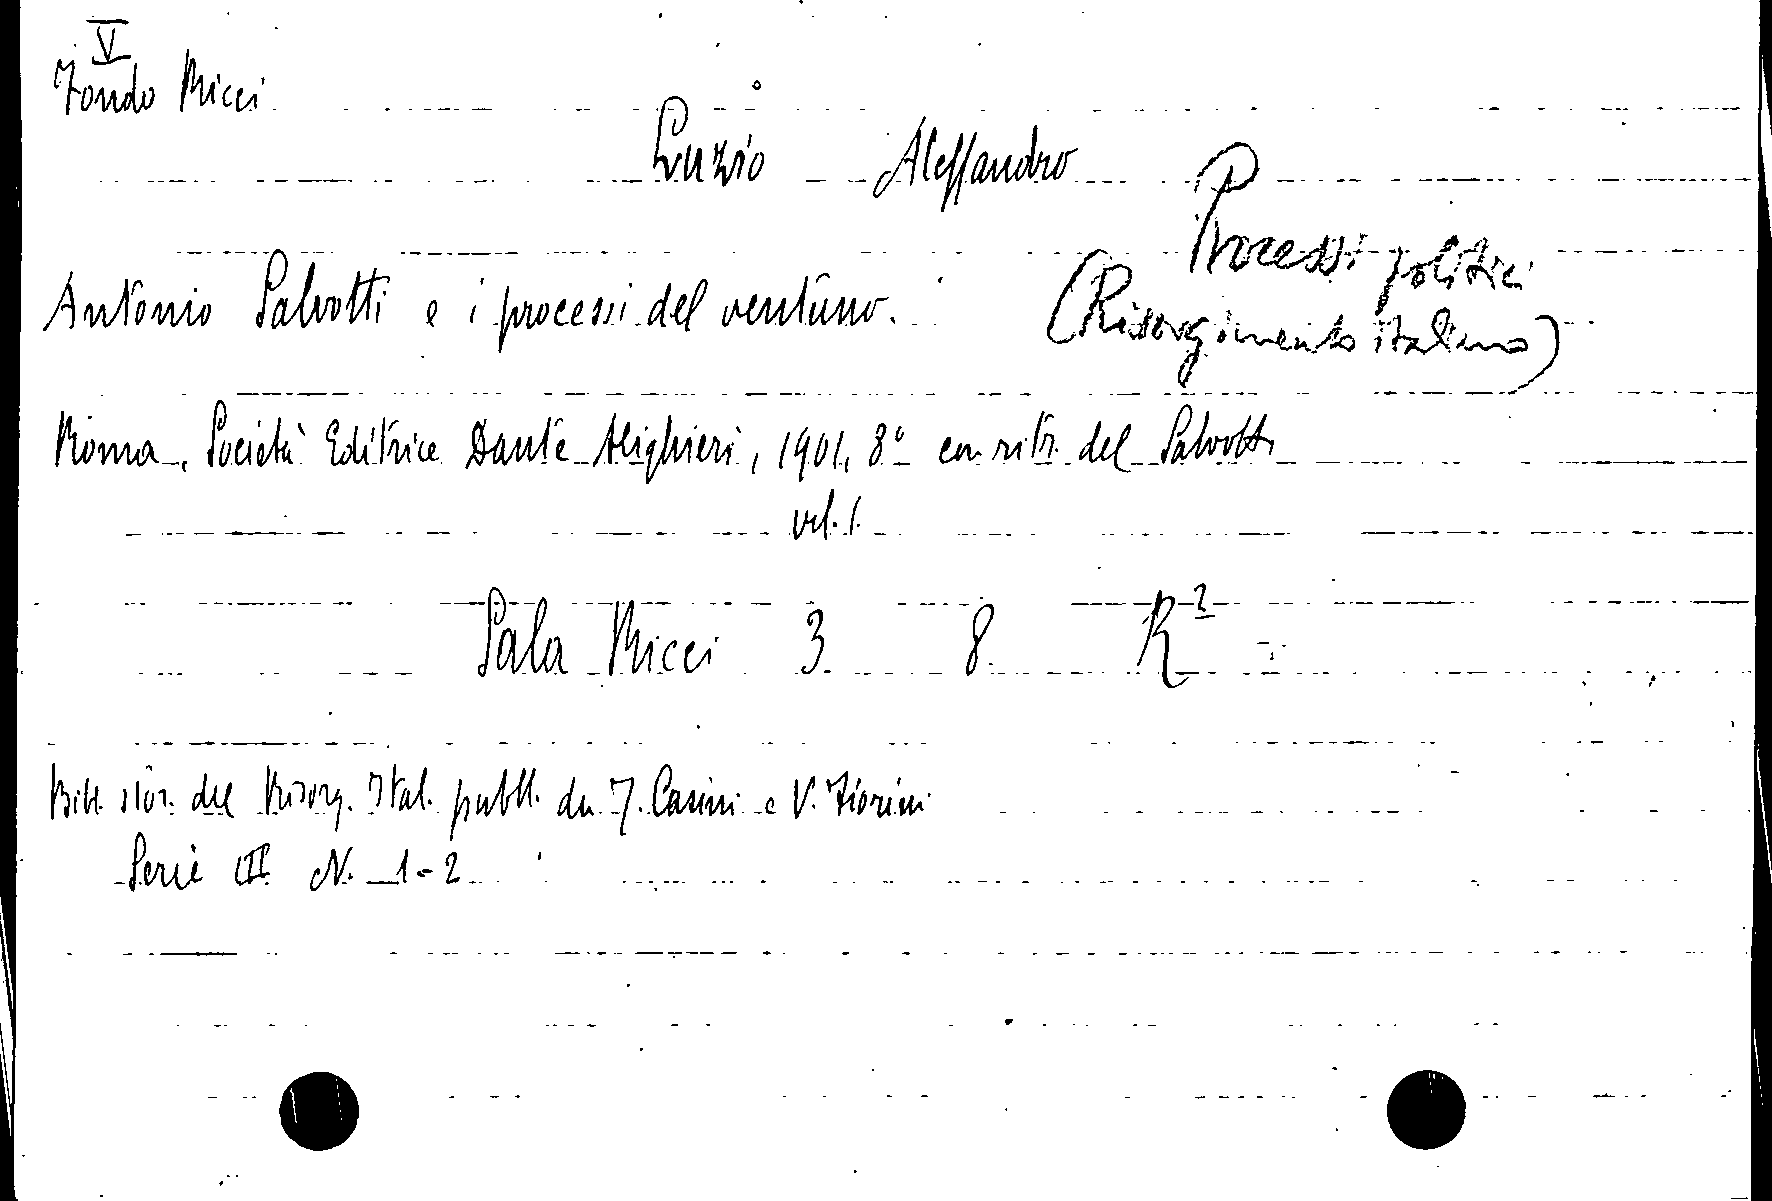 V
Fondo Ricci
Luzio Alessandro
Processi politici
(Risorgimento italiano)
Antonio Salvotti e i processi del ventuno.
Roma, Società Editrice Dante Alighieri, 1901, 8° con ritr. del Salvotti
vol. 1.
Sala Ricci 3 8 R²
Bibl. stor. del Risorg. Ital. pubbl. da T. Casini e V. Fiorini
Serie III N. 1-2